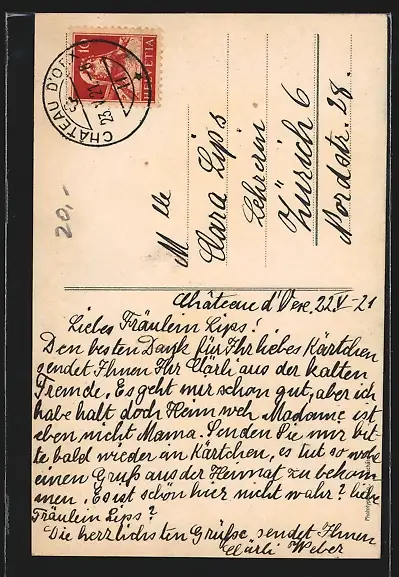 10
HELVETIA
CHÂTEAU D'ŒX
23.V.21
20,-
Mlle
Clara Lips
Lehrerin
Zürich 6
Nordstr. 28.
Château d'Oex, 22.V.-21
Liebes Fräulein Lips!
Den besten Dank für Ihr liebes Kärtchen
sendet Ihnen Ihr Clärli aus der kalten
Fremde. Es geht mir schon gut, aber ich
habe halt doch Heimweh Madame ist
eben nicht Mama. Senden Sie mir bit-
te bald wieder ein Kärtchen, es tut so wohl
einen Gruß aus der Heimat zu bekom-
men. Es ist schön hier nicht wahr? liebe
Fräulein Lips?
Die herzlichsten Grüße sendet Ihnen
Clärli Weber